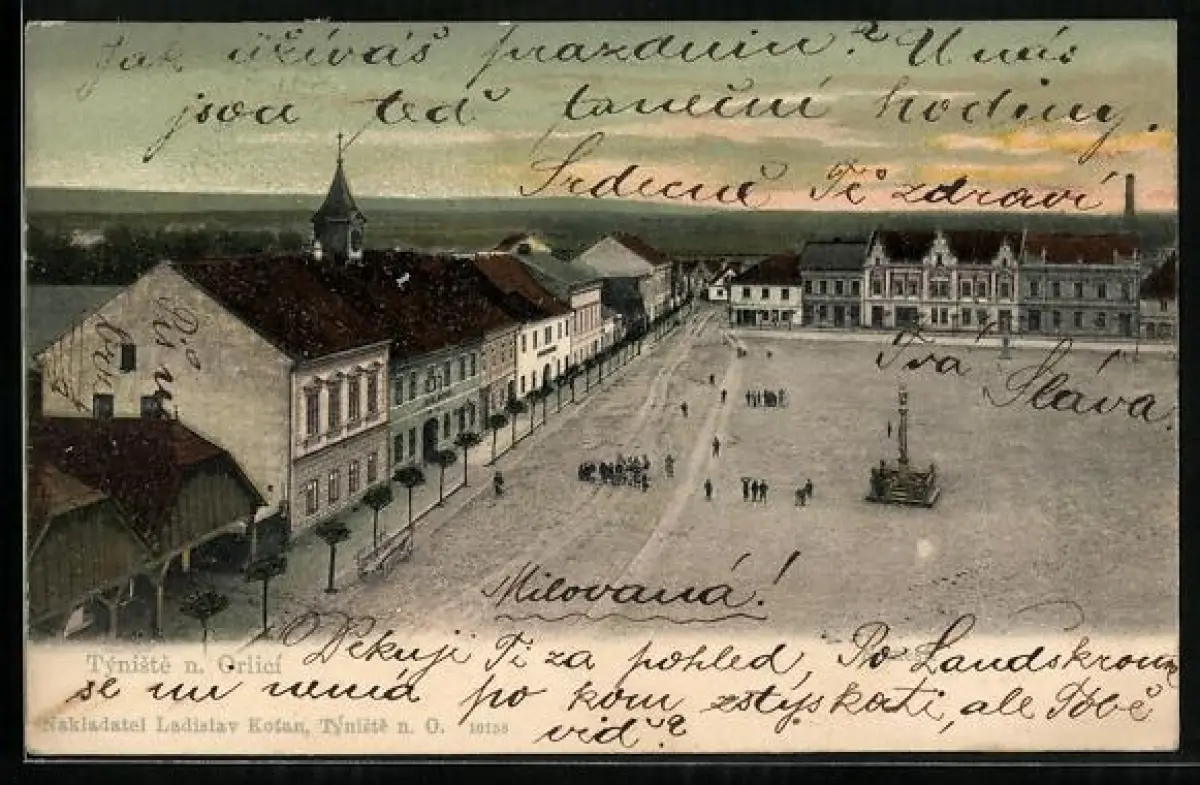 Jak užíváš prazdnin? U nás
jsou teď taneční hodiny.
Srdečně Tě zdraví
Tvá Sláva.
Piš v
Milovaná!
Děkuji Ti za pohled, Po Landskroun
se mu nemá po kom zstýskati, ale Tobě
viď?
Týniště n. Orlicí
Nakladatel Ladislav Koťan, Týniště n. O. 10158